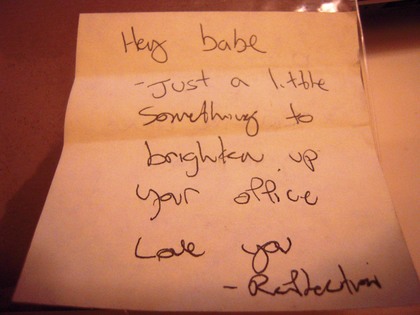 Hey babe
- Just a little
something to
brighten up
your office
Love you
- Reflection